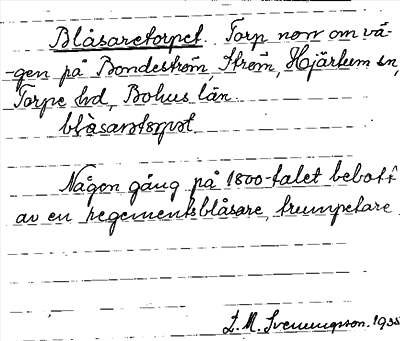 Blåsaretorpet. Torp norr om vä-
-gen på Bondeström, Ström, Hjärtum sn,
Torpe hd, Bohus län.
Någon gång på 1800-talet bebott
av en regementsblåsare, trumpetare
L.M. Svenungsson. 1935